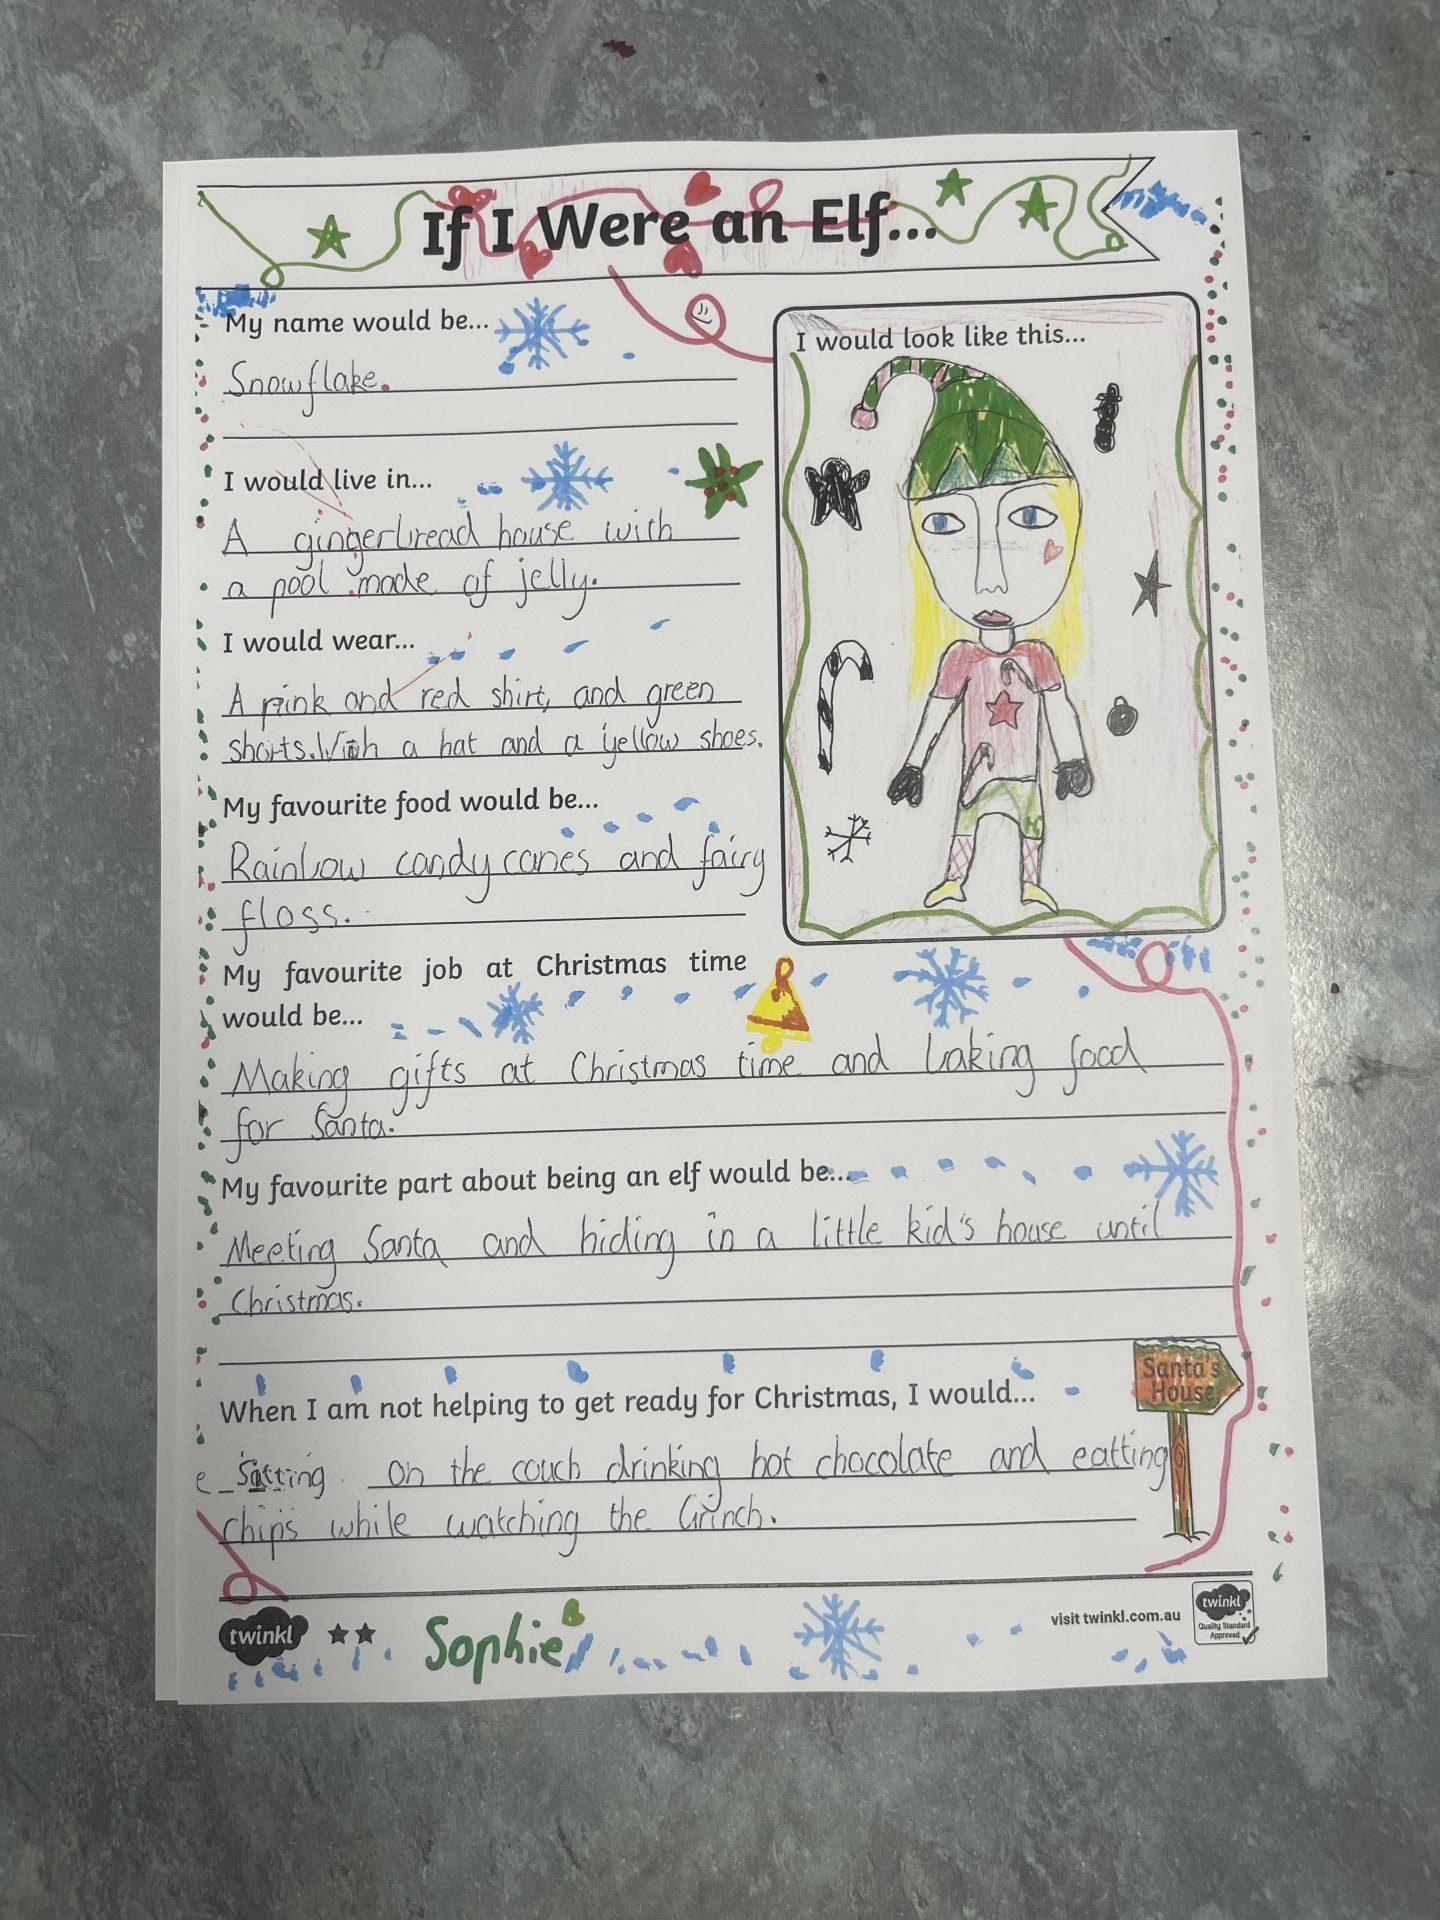 If I Were an Elf...
My name would be...
Snowflake.
I would live in...
A gingerbread house with
a pool made of jelly.
I would wear...
A pink and red shirt, and green
shorts. With a hat and a yellow shoes.
My favourite food would be...
Rainbow candy canes and fairy
floss.
I would look like this...
My favourite job at Christmas time
would be...
Making gifts at Christmas time and baking food
for Santa.
My favourite part about being an elf would be...
Meeting Santa and hiding in a little kid's house until
Christmas.
When I am not helping to get ready for Christmas, I would...
Santa's
House
on the couch drinking hot chocolate and eatting
chips while watching the Grinch.
twinkl
Sophie
visit twinkl.com.au
twinkl
Quality Standard
Approved